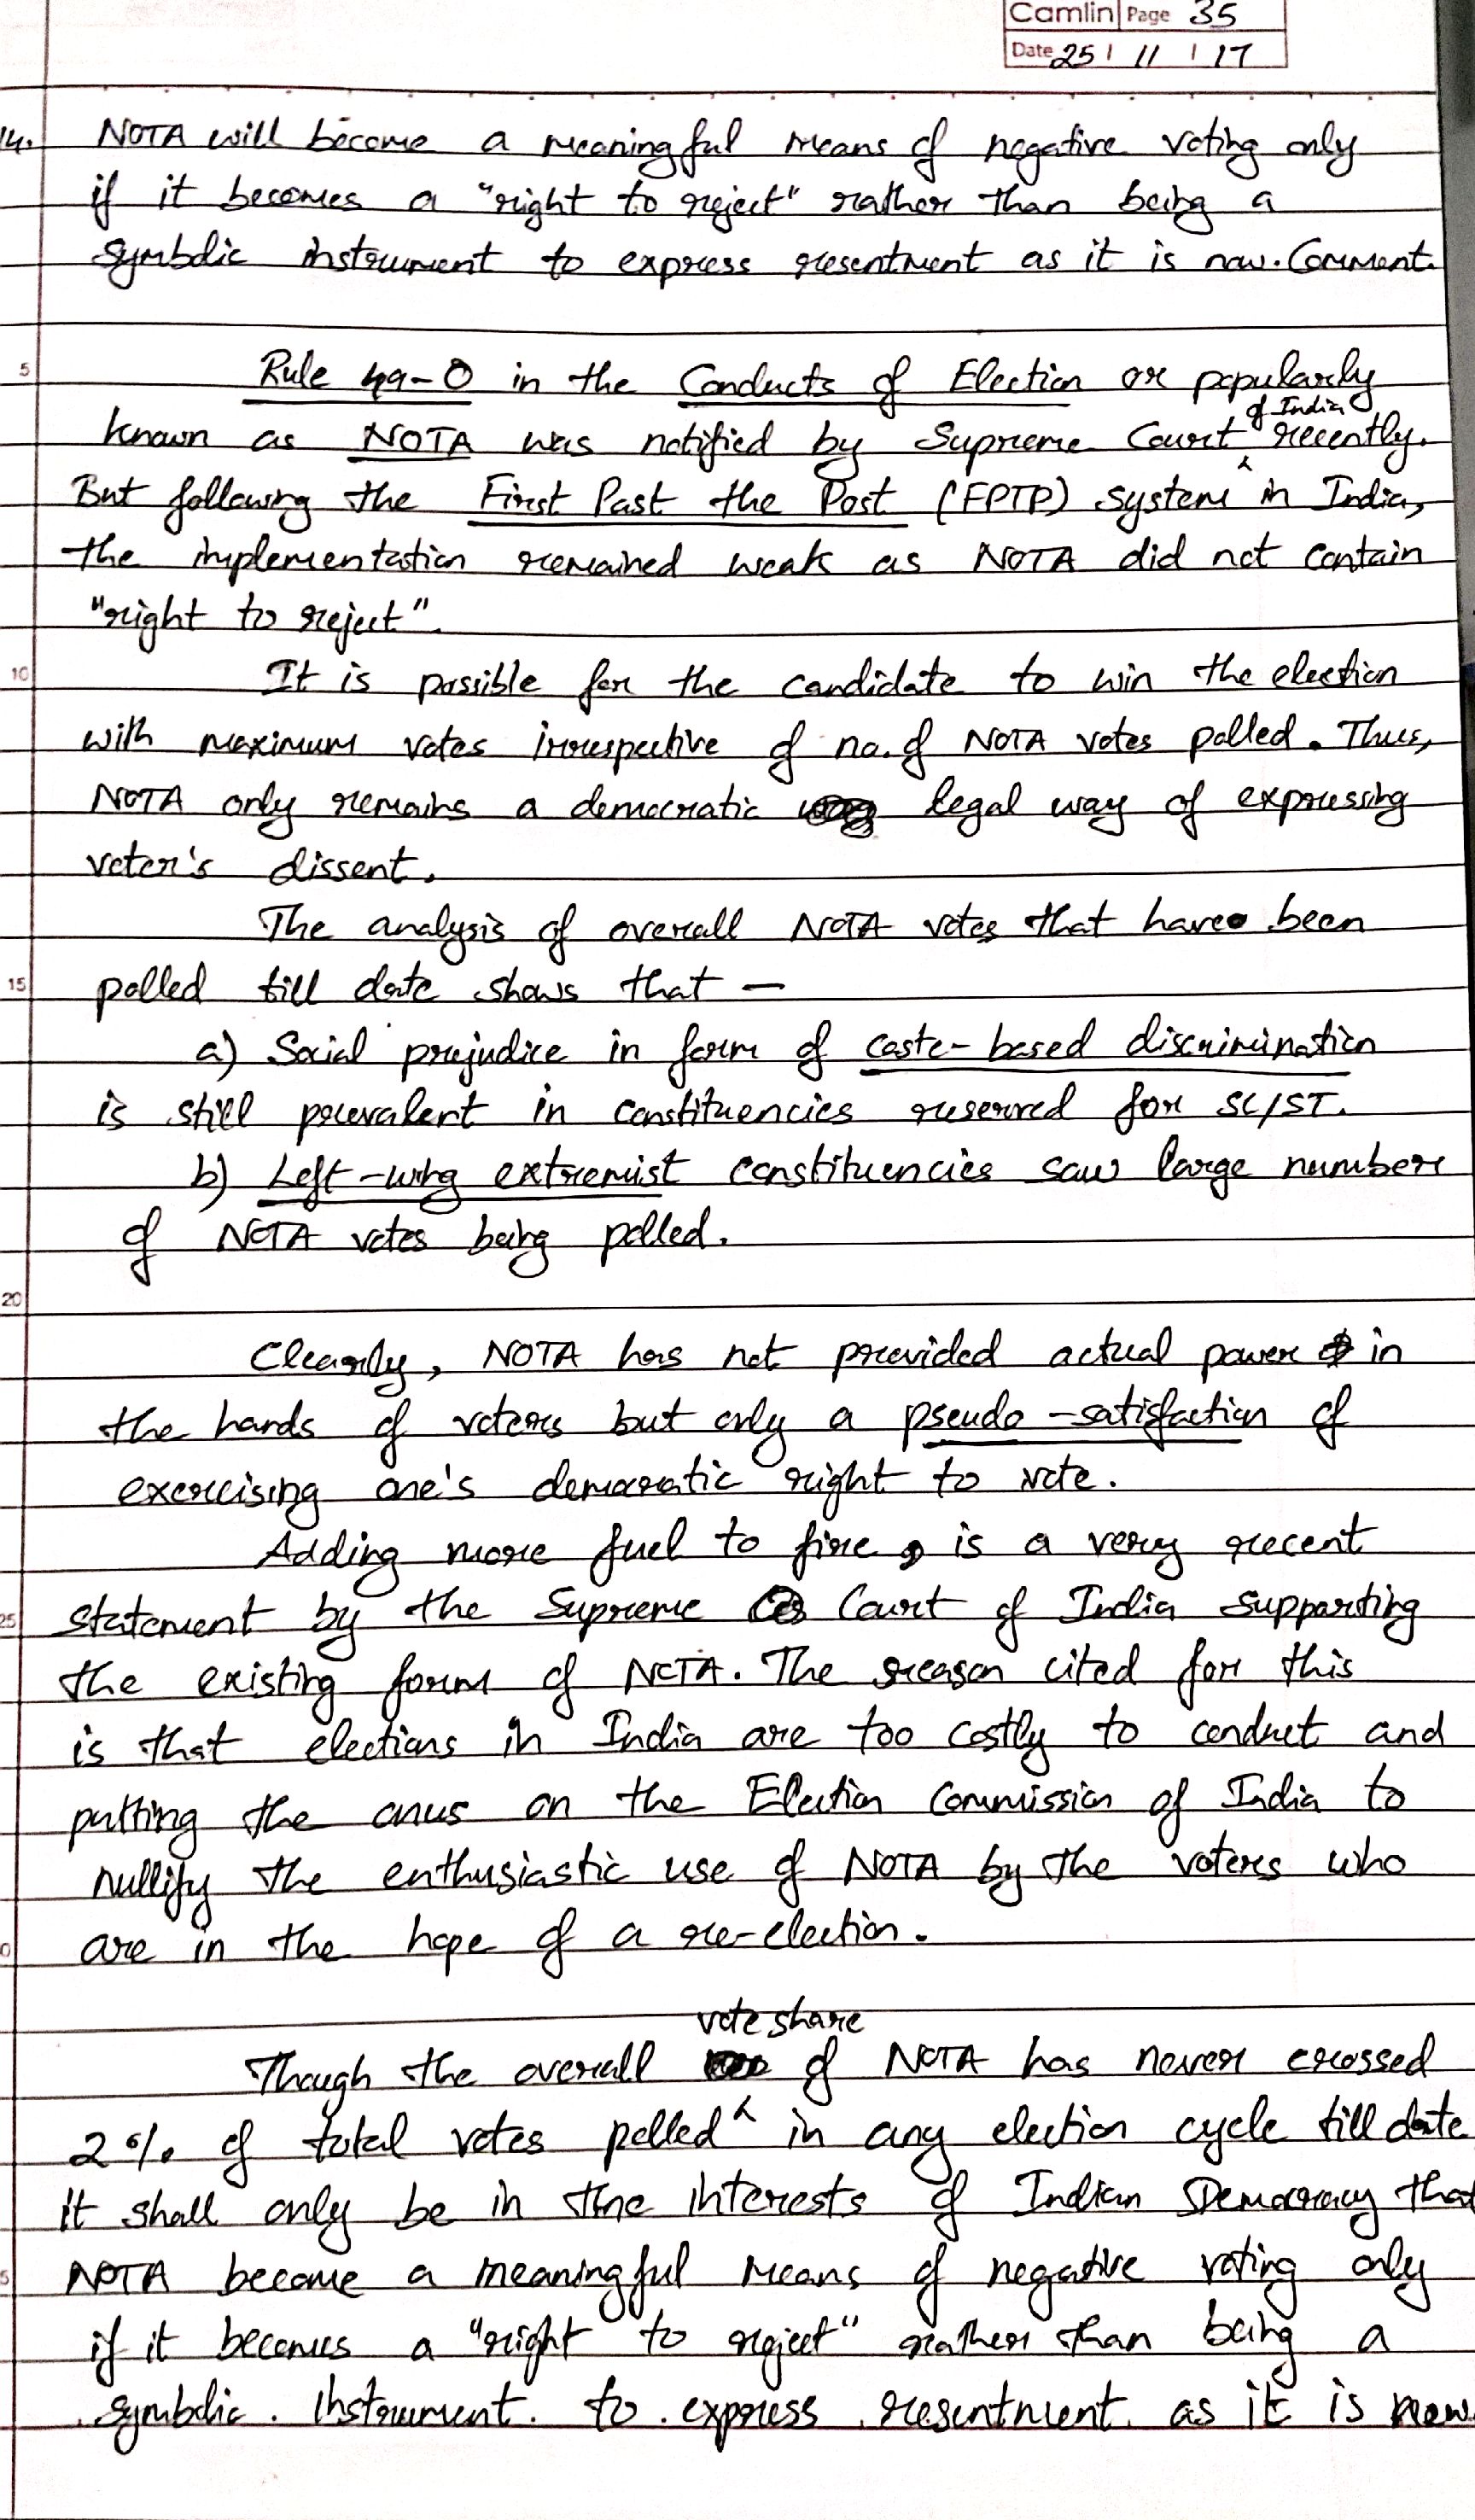 Camlin Page 35
Date 25 / 11 / 17
14. NOTA will become a meaningful means of negative voting only
if it becomes a "right to reject" rather than being a
symbolic instrument to express resentment as it is now. Comment.
5 Rule 49-O in the Conducts of Election or popularly
known as NOTA was notified by Supreme Court of India recently.
But following the First Past the Post (FPTP) system in India,
the implementation remained weak as NOTA did not contain
"right to reject".
10 It is possible for the candidate to win the election
with maximum votes irrespective of no. of NOTA votes polled. Thus,
NOTA only remains a democratic legal way of expressing
voter's dissent.
The analysis of overall NOTA votes that have been
15 polled till date shows that —
a) Social prejudice in form of caste-based discrimination
is still prevalent in constituencies reserved for SC/ST.
b) Left-wing extremist constituencies saw large number
of NOTA votes being polled.
20
Clearly, NOTA has not provided actual power in
the hands of voters but only a pseudo-satisfaction of
exercising one's democratic right to vote.
Adding more fuel to fire, is a very recent
25 statement by the Supreme Court of India supporting
the existing form of NOTA. The reason cited for this
is that elections in India are too costly to conduct and
putting the onus on the Election Commission of India to
nullify the enthusiastic use of NOTA by the voters who
0 are in the hope of a re-election.
Though the overall vote share of NOTA has never crossed
2% of total votes polled in any election cycle till date
it shall only be in the interests of Indian Democracy that
5 NOTA become a meaningful means of negative voting only
if it becomes a "right to reject" rather than being a
symbolic instrument to express resentment as it is now.